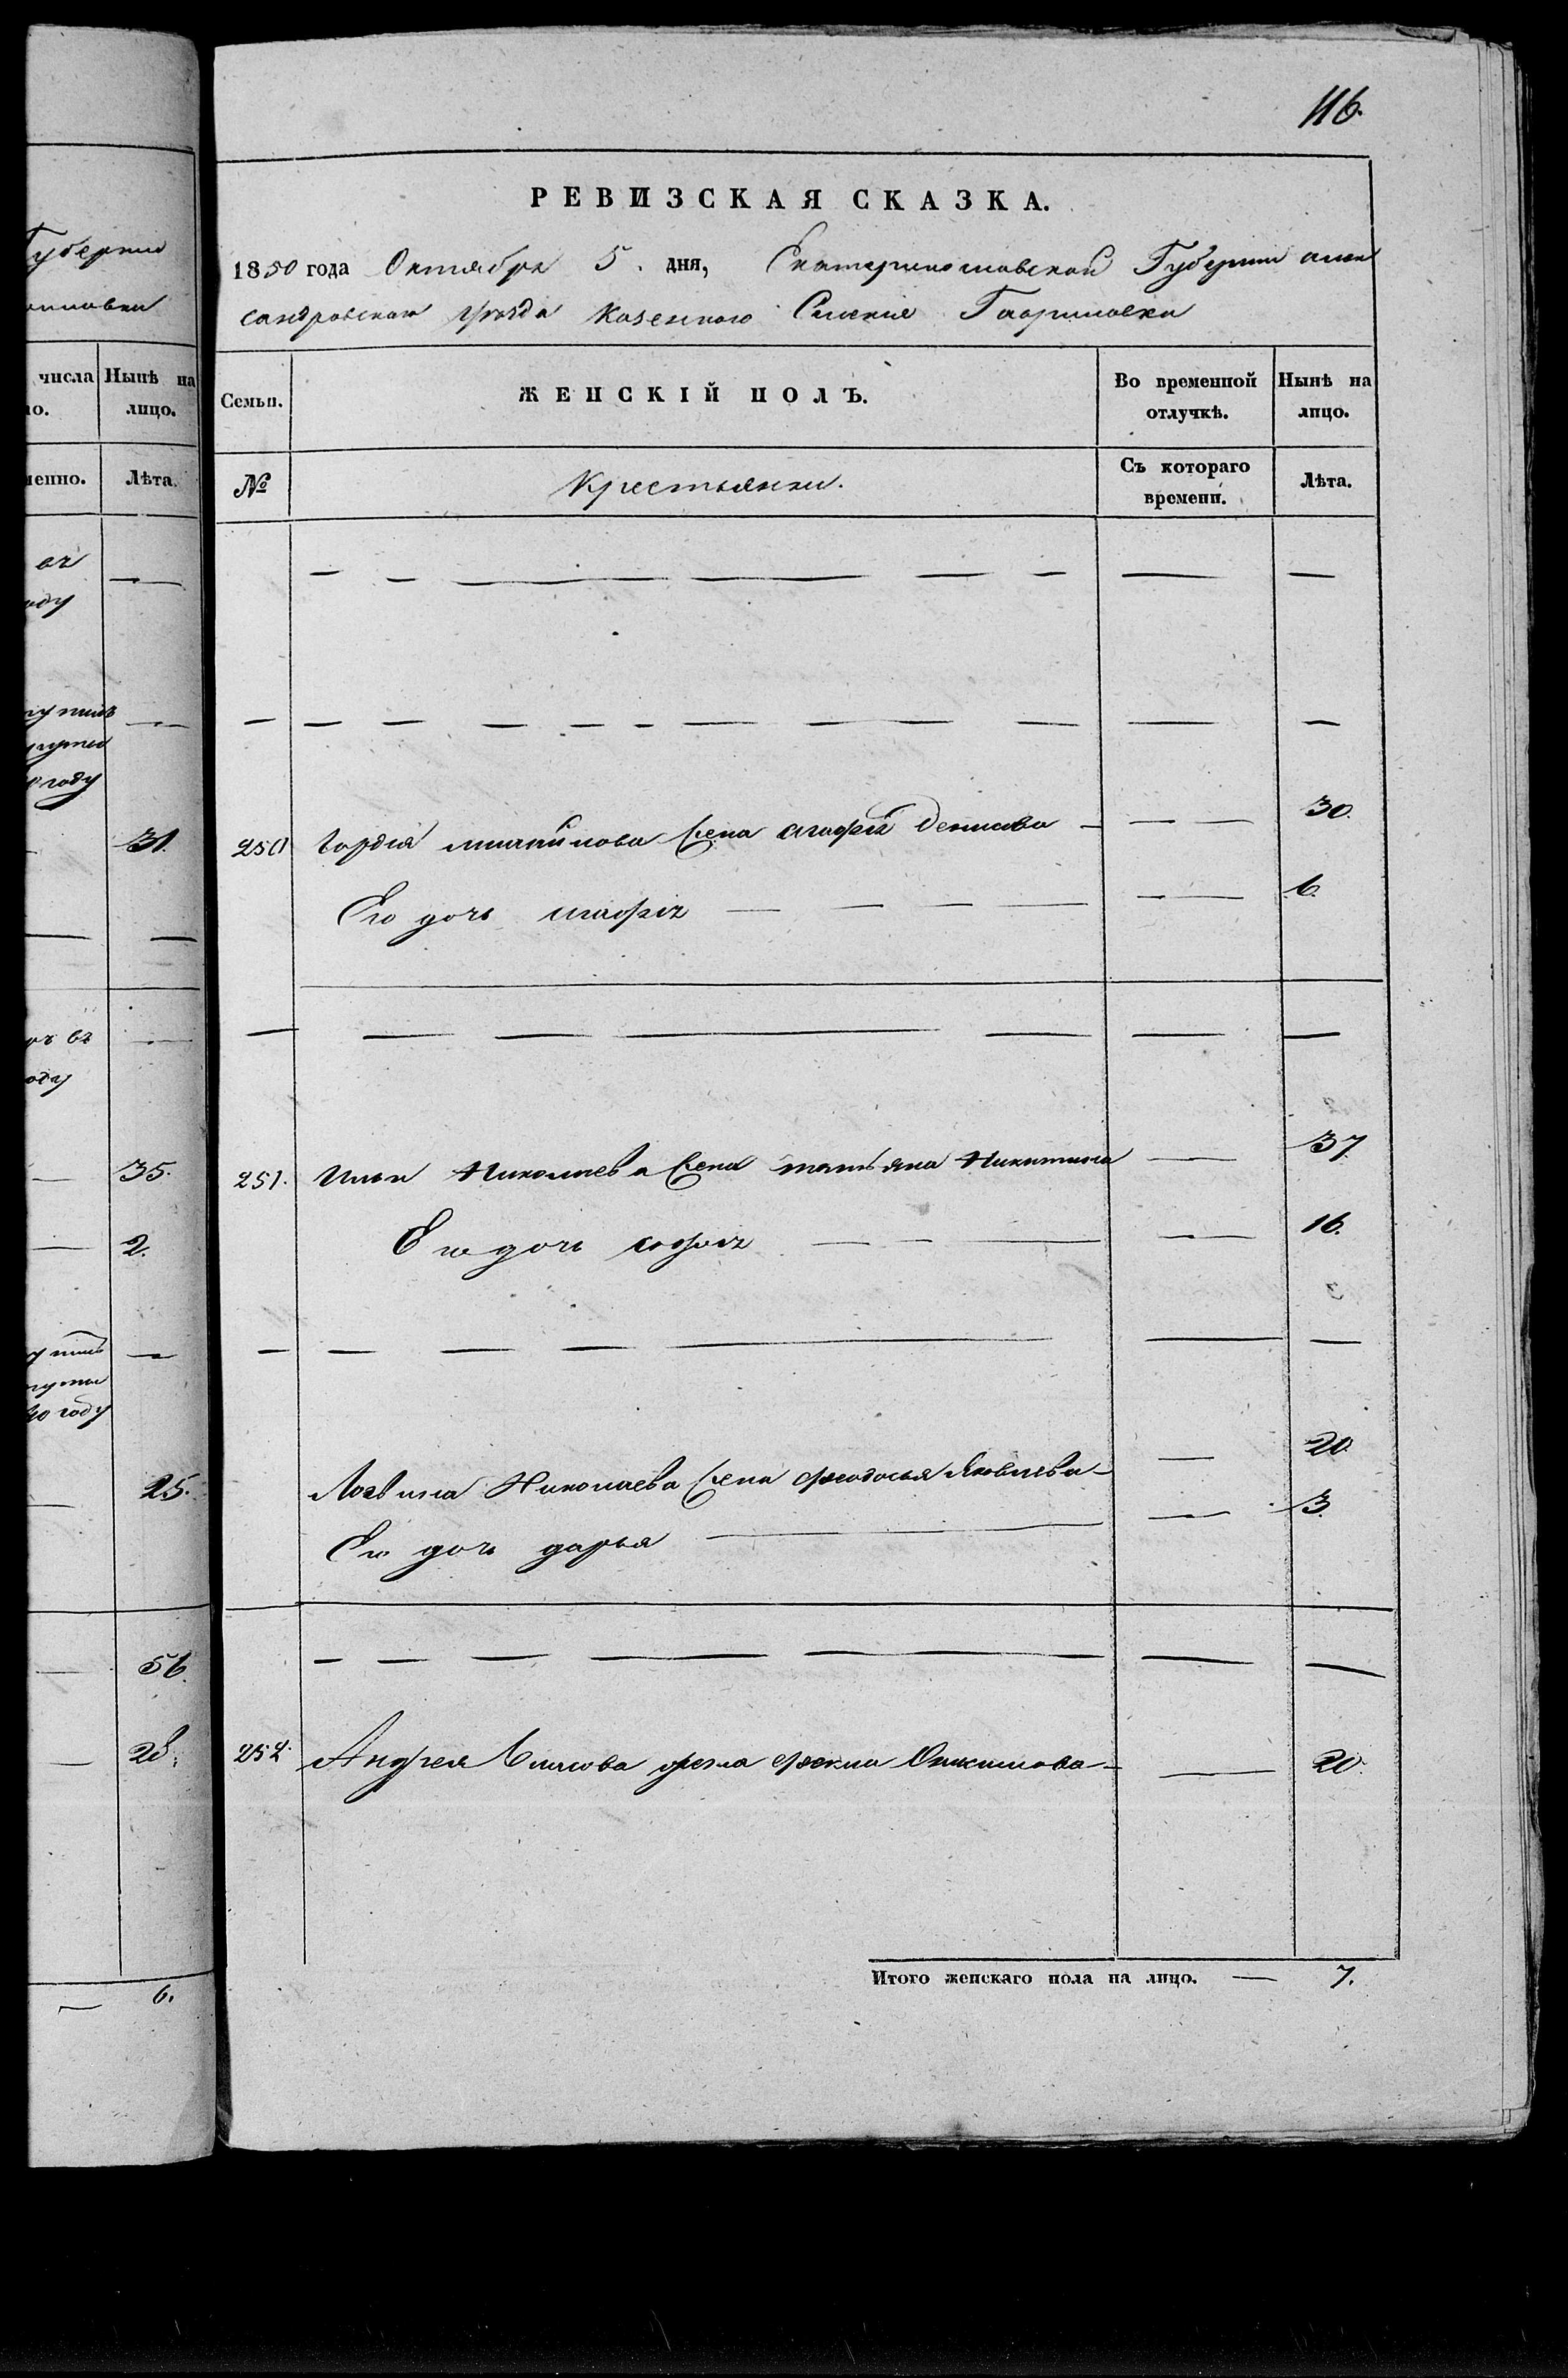 Губернии
числа Нынѣ на
лицо.
Лѣта.
въ
году
году
31.
въ
году
35.
2.
году
25.
56.
28.
6.
116.
РЕВИЗСКАЯ СКАЗКА.
1850 года Октября 5. дня, Екатеринославской Губернии алек
сандровскаго уезда казенного Селения Гавриловки
Семьи.
ЖЕНСКІЙ ПОЛЪ.
Во временной
отлучкѣ.
Нынѣ на
лицо.
№
Крестьянки.
Съ котораго
времени.
Лѣта.
250 Гордея михайлова жена агафия Денисова — 30.
Его дочь агафия — 6.
251. Ильи Николаева жена татьяна Никитина — 37
Его дочь софия — 16.
Логвина Николаева жена феодосья Яковлева — 20
Его дочь дарья — 3.
252. Андрея Власова жена фекла — 20.
Итого женскаго пола на лицо. — 7.